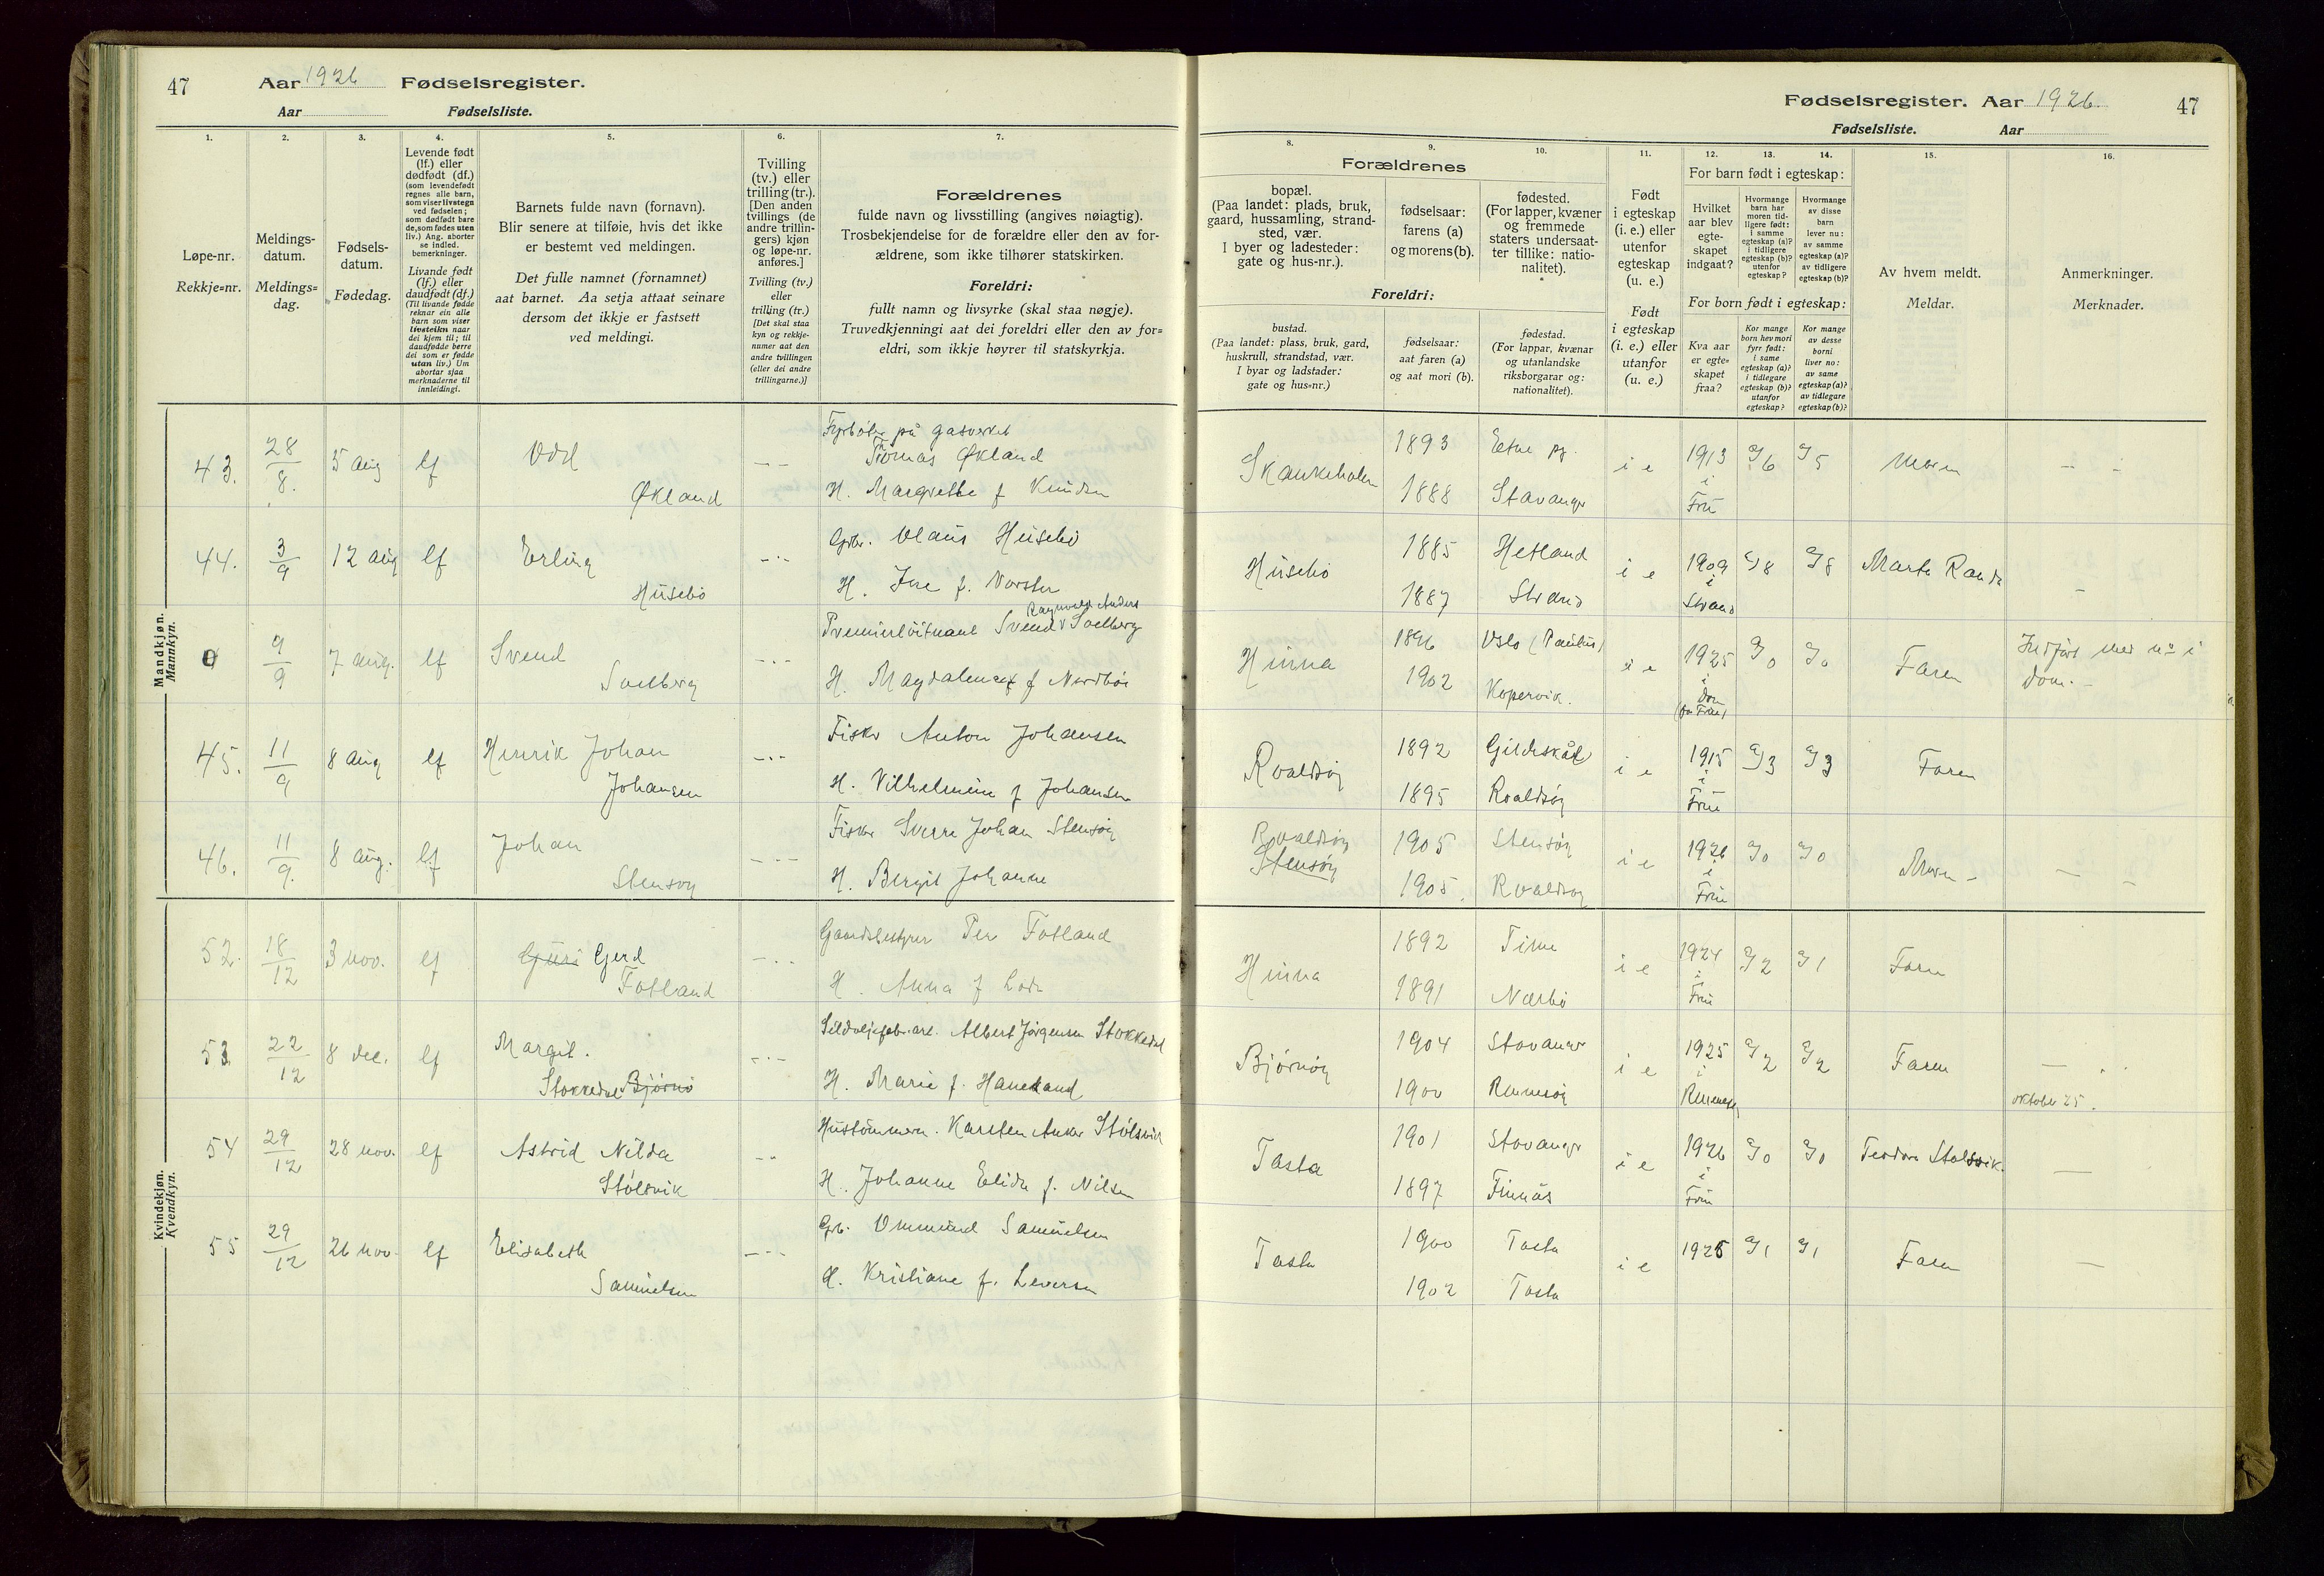 47
Aar 1926 Fødselsregister.
Aar Fødselsliste.
1.
2.
3.
4.
5.
6.
7.
Løpe-nr.
Rekkje=nr.
Meldings-
datum.
Meldings=
dag.
Fødsels-
datum.
Fødedag.
Levende født
(lf.) eller
dødfødt (df.)
(som levendefødt
regnes alle barn,
som viser livstegn
ved fødselen;
som dødfødt bare
de, som fødes uten
liv.) Ang. aborter
se indled.
bemerkninger.
Livande født
(lf.) eller
daudfødt (df.)
(Til livande fødde
reknar ein alle
barn som viser
livsteikn naar
dei kjem til; til
daudfødde berre
dei som er fødde
utan liv.) Um
abortar sjaa
merknaderne til
innleidingi.
Barnets fulde navn (fornavn).
Blir senere at tilføie, hvis det ikke
er bestemt ved meldingen.
Det fulle namnet (fornamnet)
aat barnet. Aa setja attaat seinare
dersom det ikkje er fastsett
ved meldingi.
Tvilling
(tv.) eller
trilling (tr.).
[Den anden
tvillings (de
andre trillin-
gers) kjøn
og løpe-nr.
anføres.]
Tvilling (tv.)
eller
trilling (tr.)
[Det skal staa
kyn og rekkje-
numer aat den
andre tvillingen
(eller dei andre
trillingarne.)]
Forældrenes
fulde navn og livsstilling (angives nøiagtig).
Trosbekjendelse for de forældre eller den av for-
ældrene, som ikke tilhører statskirken.
Foreldri:
fullt namn og livsyrke (skal staa nøgje).
Truvedkjenningi aat dei foreldri eller den av for=
eldri, som ikkje høyrer til statskyrkja.
Mandkjøn.
Mannkyn.
43. 28/8. 5 aug lf Odd Økland
Fyrbøter på gasverket
Tomas Økland
H. Margrethe f Knudsen
44. 3/9 12 aug lf Erling Husebø
Gbr. Olaus Husebø
H. Ine f.
0 9/9 7 aug. lf Svend Soelberg
Ragnvald Anders
Premierløitnant Svend Soelberg
H. Magdalene f Nordbø
45. 11/9 8 aug lf Henrik Johan Johansen
Fisker Anton Johansen
H. Vilhelmine f Johansen
46. 11/9. 8 aug. lf Johan Stensøy
Fisker Sverre Johan Stensøy
H. Bergit Johanne
Kvindekjøn.
Kvendkyn.
52. 18/12 3 nov. lf Guri Gerd Fotland
Gaardsbestyrer Per Fotland
H. Anna f Lode
53. 22/12 8 dec. lf Margit. Stokkedal Bjørnø
Sildoljefabr.arb. Albert Jørgensen Stokkedal
H. Marie f. Haneland
54 29/12 28 nov. lf Astrid Nilda Stølsvik
Hustømmerm. Karsten Anker Stølsvik
H. Johanne Elida f. Nilsen
55 29/12 26 nov. lf Elisabeth Samuelsen
Gb. Ommund Samuelsen
H. Kristiane f. Leversen
Fødselsregister. Aar 1926. 47
Fødselsliste. Aar
8.
9.
10.
11.
12.
13.
14.
15.
16.
Forældrenes
bopæl.
(Paa landet: plads, bruk,
gaard, hussamling, strand-
sted, vær.
I byer og ladesteder:
gate og hus-nr.).
fødselsaar:
farens (a)
og morens (b).
fødested.
(For lapper, kvæner
og fremmede
staters undersaat-
ter tillike: natio-
nalitet).
Foreldri:
bustad.
(Paa landet: plass, bruk, gard,
huskrull, strandstad, vær.
I byar og ladstader:
gate og hus=nr.)
fødselsaar:
aat faren (a)
og aat mori (b).
fødestad.
(For lappar, kvænar
og utanlandske
riksborgarar og:
nationalitet).
Født
i egteskap
(i. e.) eller
utenfor
egteskap
(u. e.)
Født
i egteskap
(i. e.) eller
utanfor
(u. e.)
For barn født i egteskap:
Hvilket
aar blev
egte-
skapet
indgaat?
Hvormange
barn har
moren tid-
ligere født:
i samme
egteskap (a)?
i tidligere
egteskap (b)?
utenfor
egteskap?
Hvormange
av disse
barn
lever nu:
av samme
egteskap (a)?
av tidligere
egteskap (b)?
For born født i egteskap:
Kva aar
er egte=
skapet
fraa?
Kor mange
born hev mori
fyrr født:
i same
egteskap (a)?
i tidlegare
egteskap (b)?
utanfor
egteskap?
Kor mange
av desse
borni
liver no:
av same
egteskap (a)?
av tidlegare
egteskap (b)?
Av hvem meldt.
Meldar.
Anmerkninger.
Merknader.
Skankeholm 1893 Etne pg. 1888 Stavanger i e 1913 i Frue 6 5 Moren
Husebø 1885 Hetland 1887 Strand i e 1909 i Strand 8 8 Marta Rande
Hinna 1896 Oslo (Paulus) 1902 Kopervik. i e 1925 i Dom 0 0 Faren Indført uten no i Dom.
Roaldsøy 1892 Gildeskål 1895 Roaldsøy i e 1915 i Frue 3 3 Faren
Roaldsøy Stensøy 1905 Stensøy 1905. Roaldsøy i e 1926 i Frue 0 0 Moren
Hinna 1892 Time 1891 Nærbø i e 1924 i Frue 2 1 Faren
Bjørnøy 1904 Stavanger 1900 Rennesøy i e 1925 i Rennesøy 2 2 Faren
oktober 25.
Tasta 1901 Stavanger 1897 Finnås i e 1926 i Frue 0 0 Teodor Stølsvik.
Tasta 1900 Tasta 1902 Tasta i e 1925 1 1 Faren